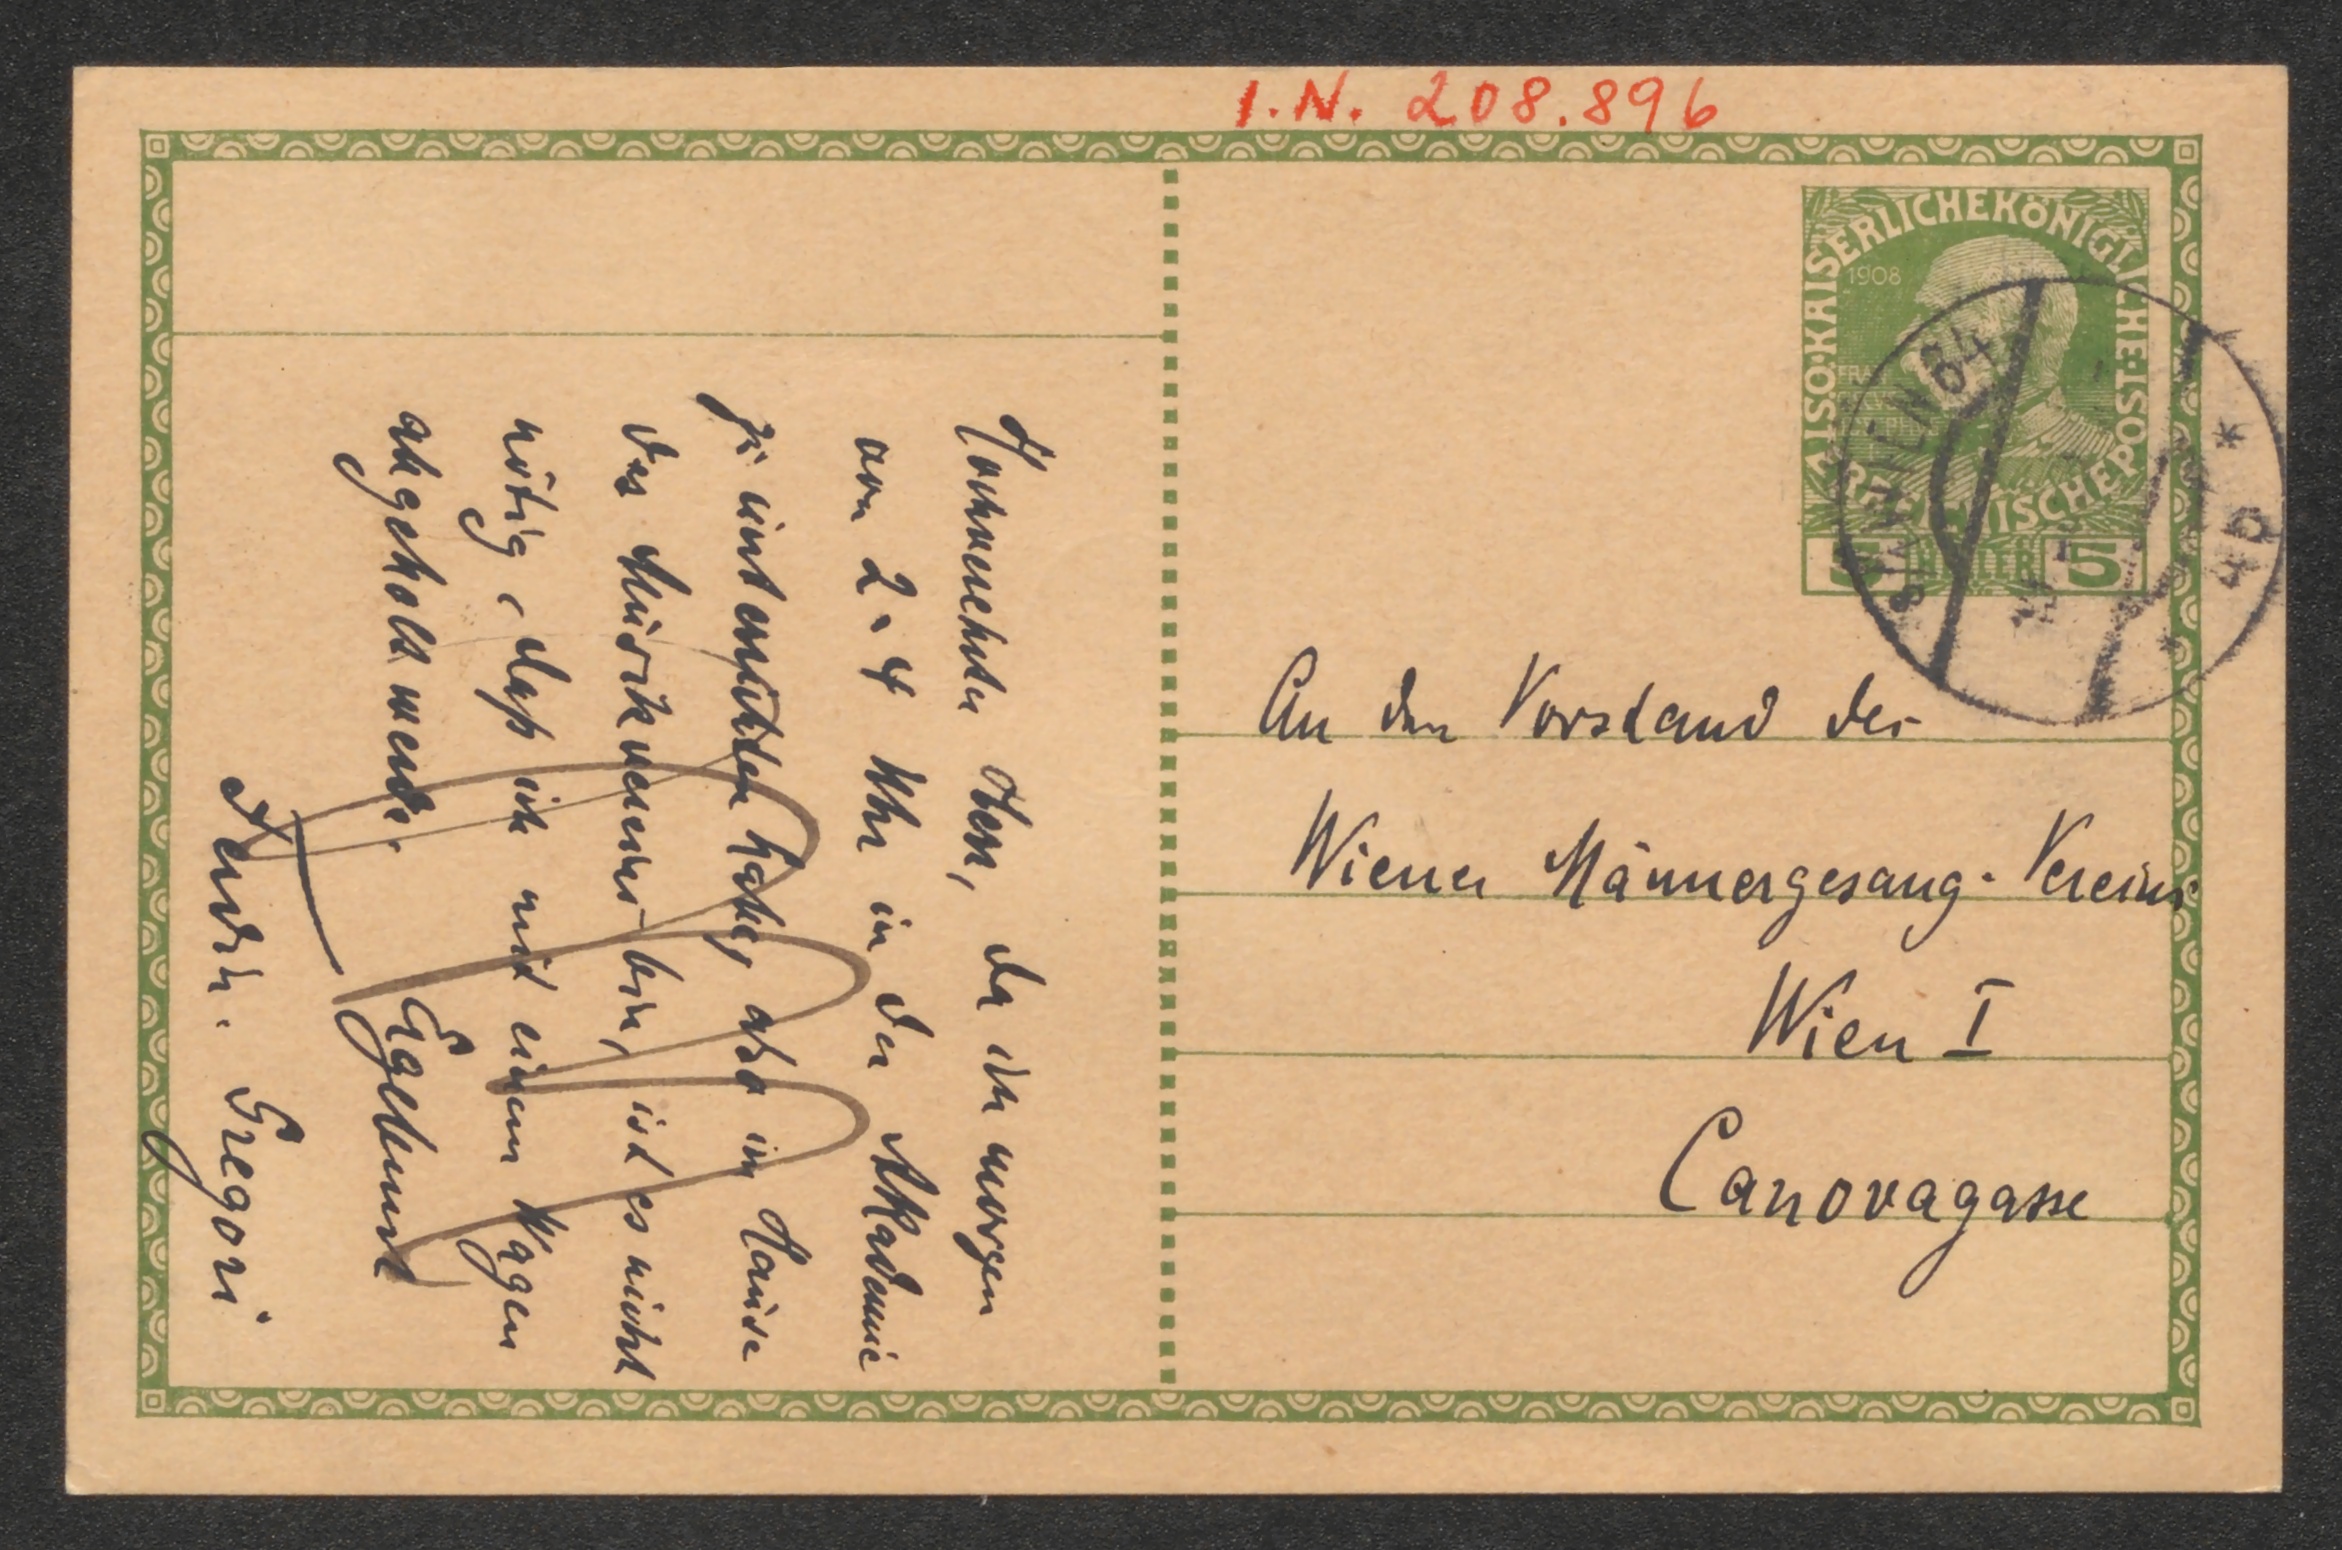 I.N. 208.896
KAISERLICHE KÖNIGLICHE ÖSTERREICHISCHE POST
1908
5 HELLER 5
WIEN 64
4b
An den Vorstand des
Wiener Männergesang-Vereins
Wien I
Canovagasse
Hochverehrter Herr, da ich morgen
von 2-4 Uhr in der Akademie
zu unterrichten habe, also im Hause
des Musikvereins bin, ist es nicht
nötig, daß ich mit einem Wagen
abgeholt werde.
Ergebenst
Ferdin. Gregori